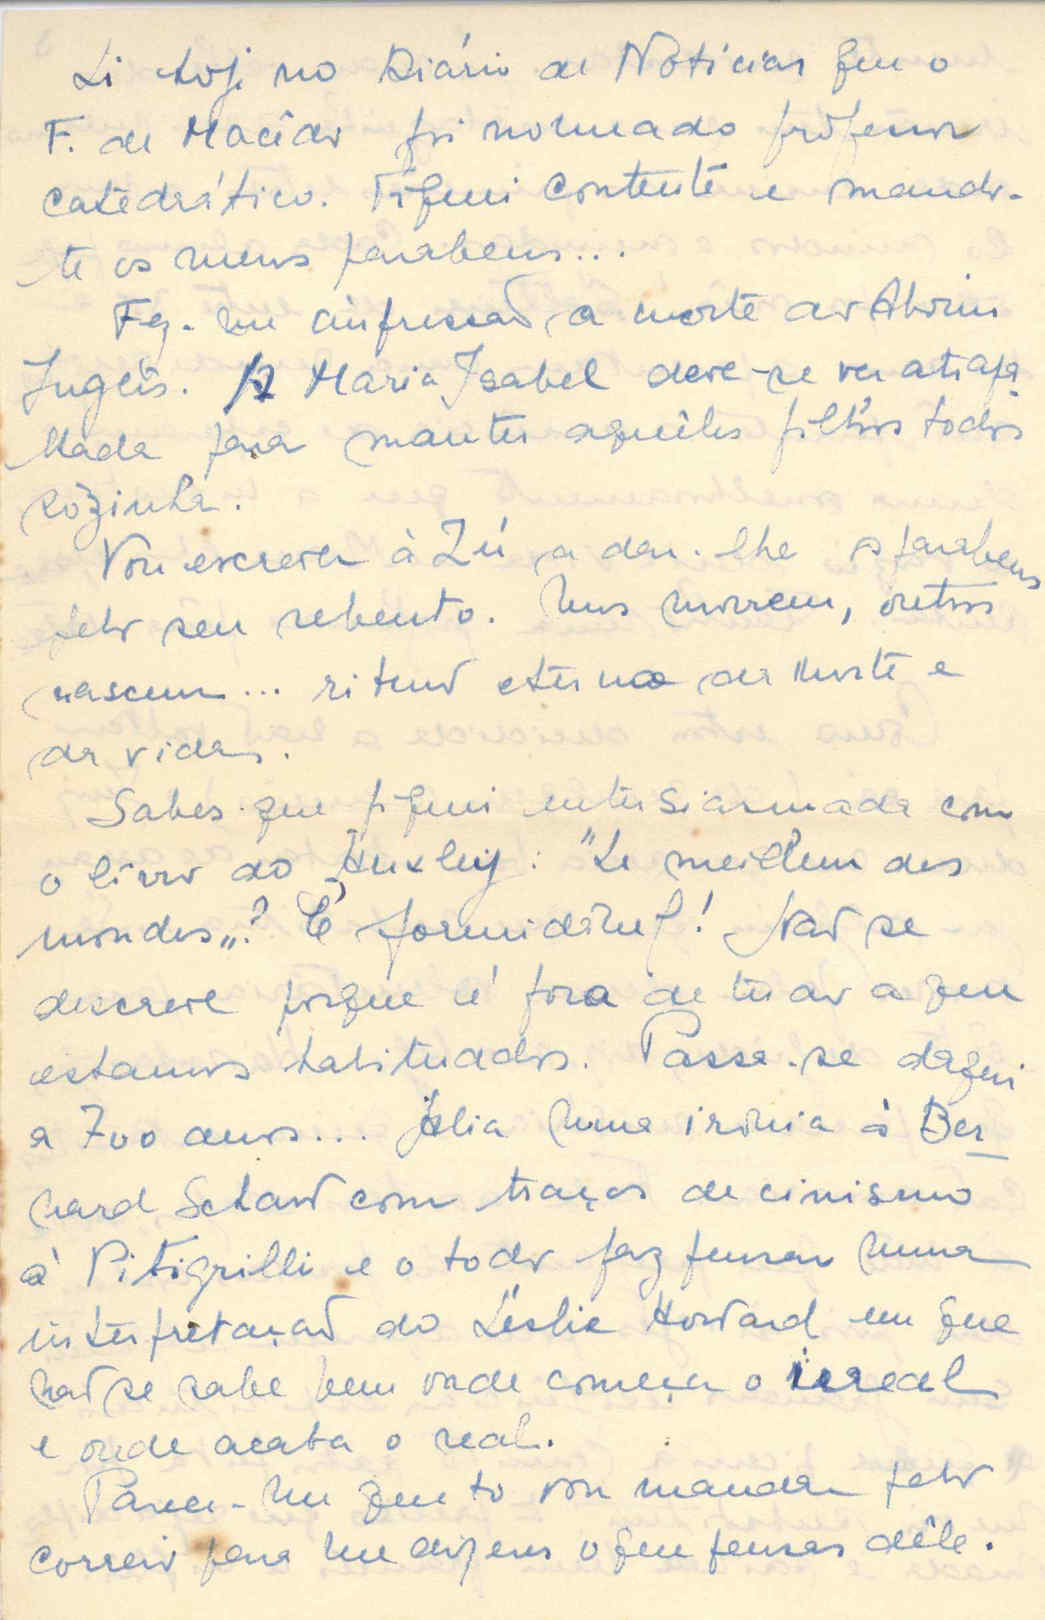 Li hoje no Diário de Notícias que o
F. de Macêdo foi nomeado professor
catedrático. Fiquei contente e mando-
te os meus parabens...
Fez-me impressão a morte do
Inglês. A Maria Isabel deve-se ver atrapa
lhada para manter aquêles filhos todos
sòzinha.
Vou escrever à Zú a dar-lhe os parabens
pelo seu rebento. Uns morrem, outros
nascem... ritmo eterno da morte e
da vida.
Sabes que fiquei entusiasmada com
o livro do Huxley: "Le meilleur des
mondes"? É formidável! Não se
descreve porque é fora de tudo a que
estamos habituados. Passa-se daqui
a 700 anos... Alia uma ironia à Ber
nard Schaw com traços de cinismo
à Pitigrilli e o todo faz pensar numa
interpretação do Leslie Howard em que
não se sabe bem onde começa o irreal
e onde acaba o real.
Parece-me que to vou mandar pelo
correio para me dizeres o que pensas dêle.